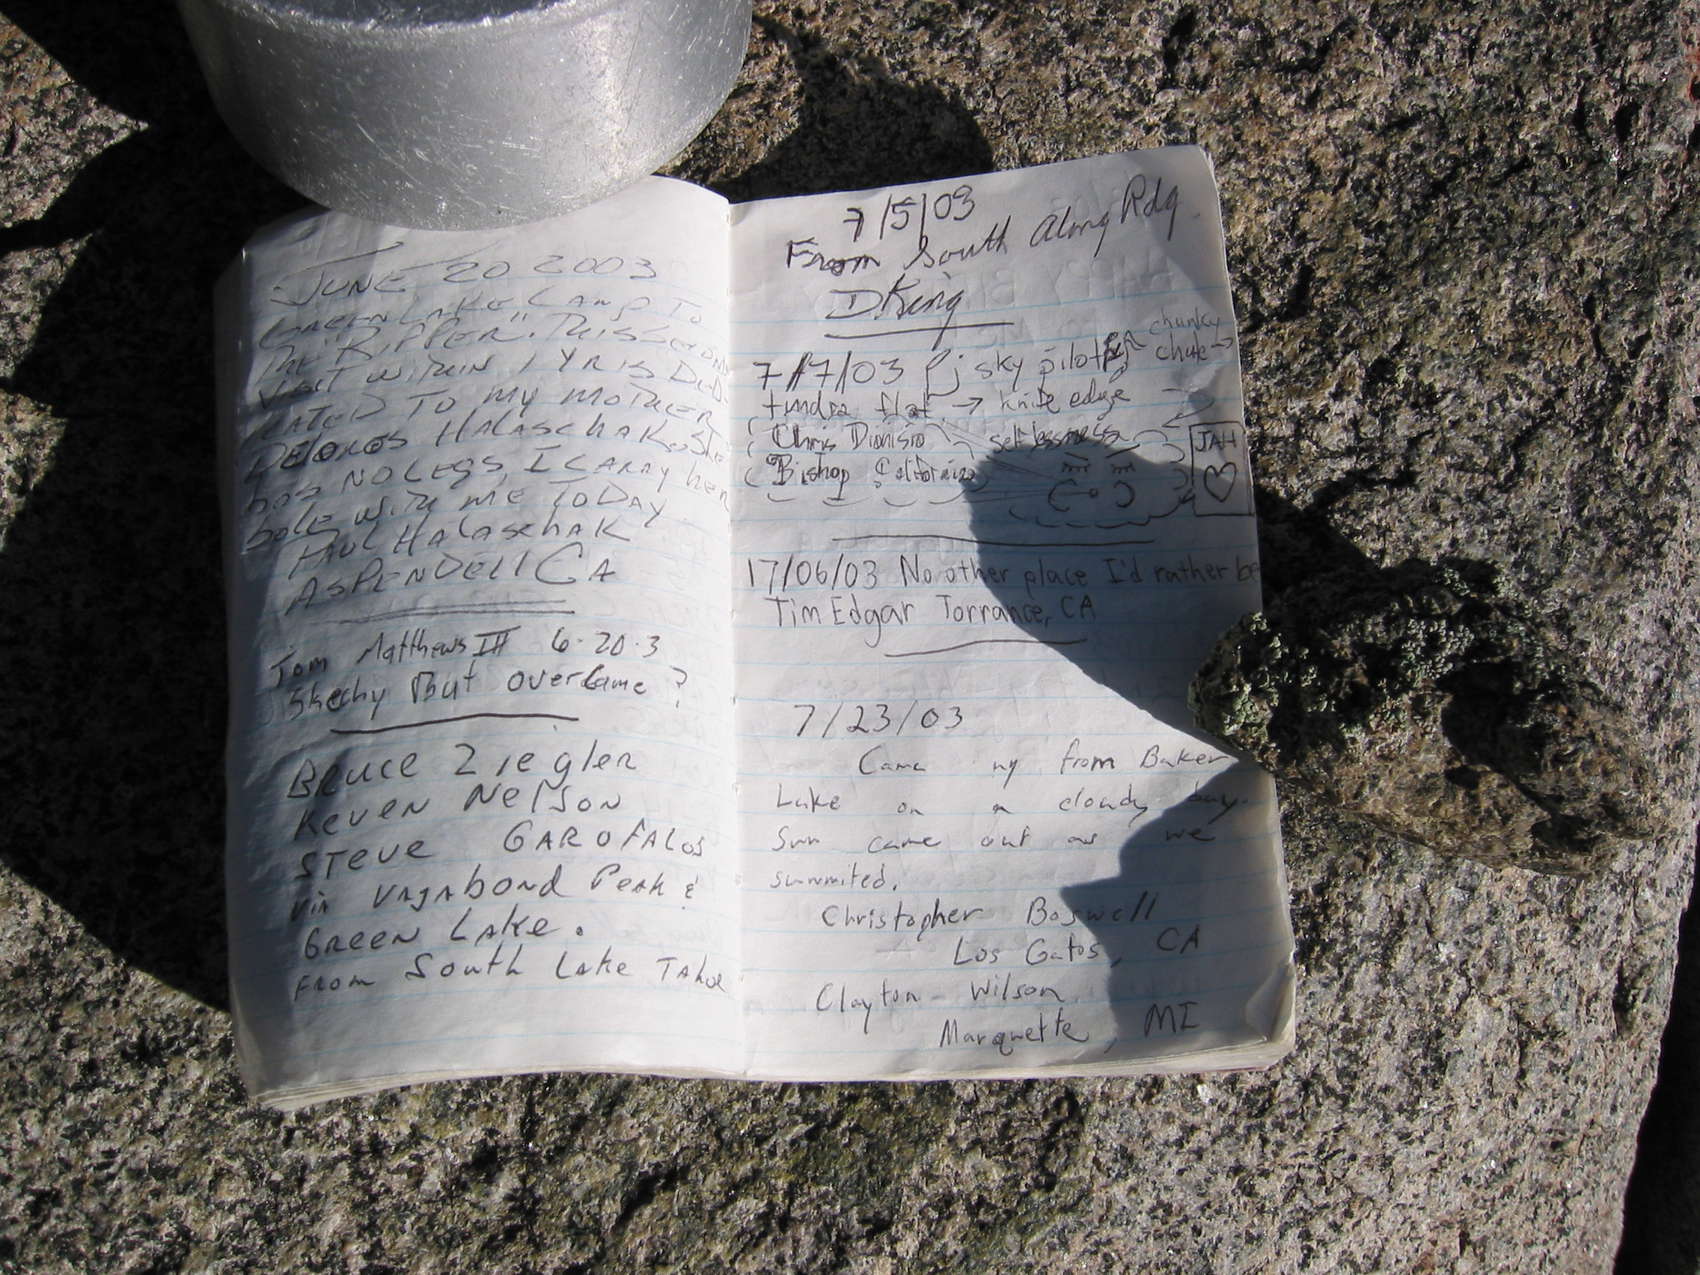 JUNE 20 2003
GREEN LAKE CAMP TO
THE "RIPPER". THIS SECOND
VISIT WITHIN 1 YR IS DEDI
CATED TO MY MOTHER
DELORES HALASCHAK. She
has NO LEGS, I CARRY her
with me TODAY
PAUL HALASCHAK
ASPENDELL CA
Tom Matthews III 6-20-3
Skechy But overCame ?
BRUCE ZIEGLER
KEVEN NELSON
STEVE GAROFALOS
via VAGABOND Peak &
GREEN LAKE.
FROM SOUTH LAKE TAHOE
7/5/03
From South Along Rdg
D. King
7/17/03 sky pilot chunky
chute →
tundra flat → knife edge
Chris Dionisio selflessness
JAH
Bishop California
17/06/03 No other place I'd rather be
Tim Edgar Torrance, CA
7/23/03
Came up from Baker
Lake on a cloudy day.
Sun came out as we
summited.
Christopher Boswell
Los Gatos, CA
Clayton Wilson
Marquette, MI